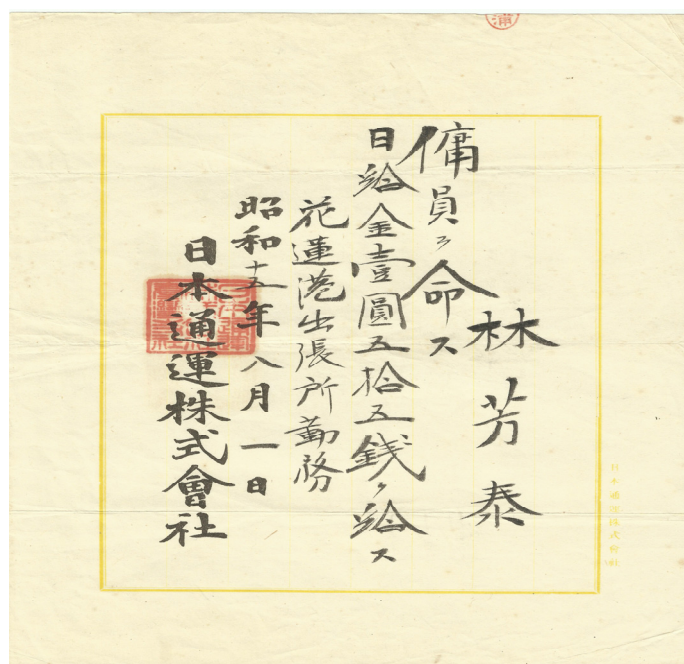 林芳泰
傭員ヲ命ス
日給金壹圓五拾五錢ヲ給ス
花蓮港出張所勤務
昭和十五年八月一日
日本通運株式會社
日本通運株式會社